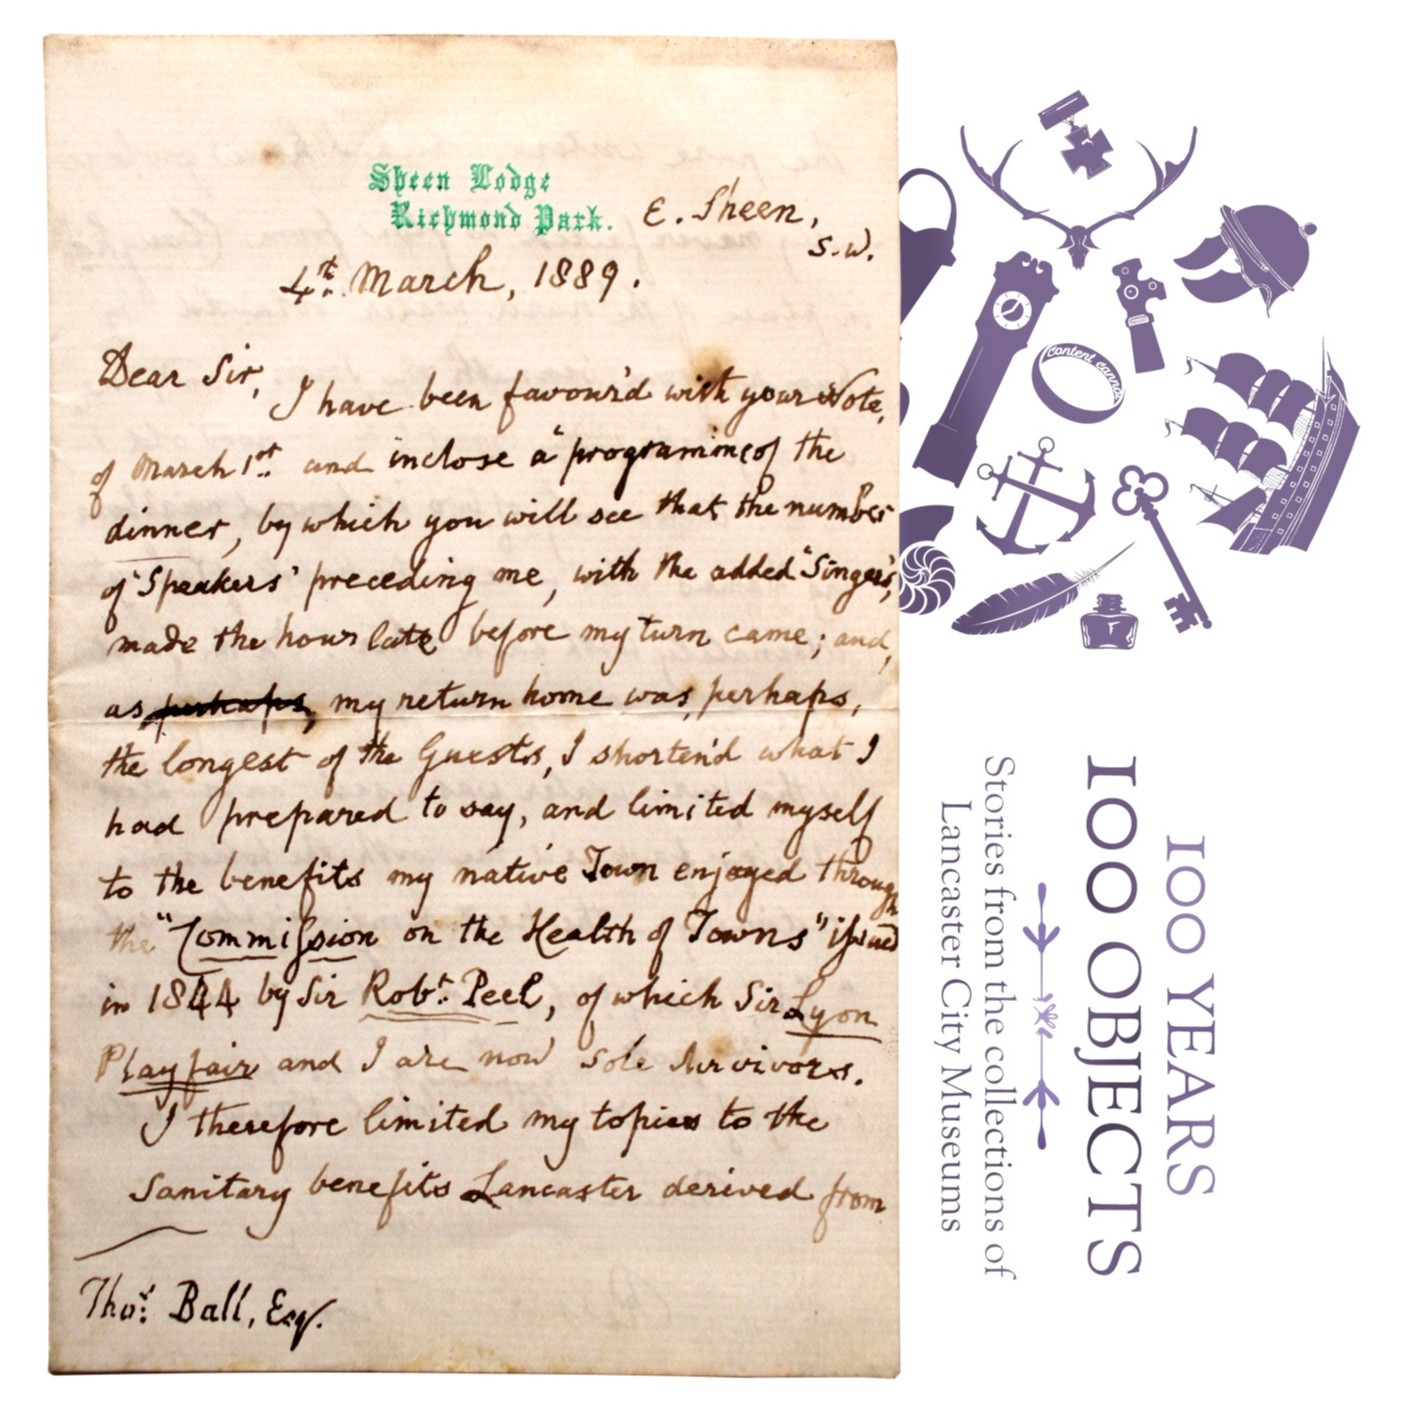 Sheen Lodge
Richmond Park.
E. Sheen,
S.W.
4th. March, 1889.
Dear Sir,
I have been favour'd with your Note,
of March 1st. and inclose a "programme of the
dinner, by which you will see that the number
of "Speakers" preceding me, with the added "Singers",
made the hour late before my turn came; and,
as perhaps, my return home was, perhaps,
the longest of the Guests, I shorten'd what I
had prepared to say, and limited myself
to the benefits my native Town enjoyed through
the "Commission on the Health of Towns" issued
in 1844 by Sir Robt. Peel, of which Sir Lyon
Playfair and I are now sole survivors.
I therefore limited my topics to the
Sanitary benefits Lancaster derived from
Thos. Ball, Esq.
content
100 YEARS
100 OBJECTS
Stories from the collections of
Lancaster City Museums